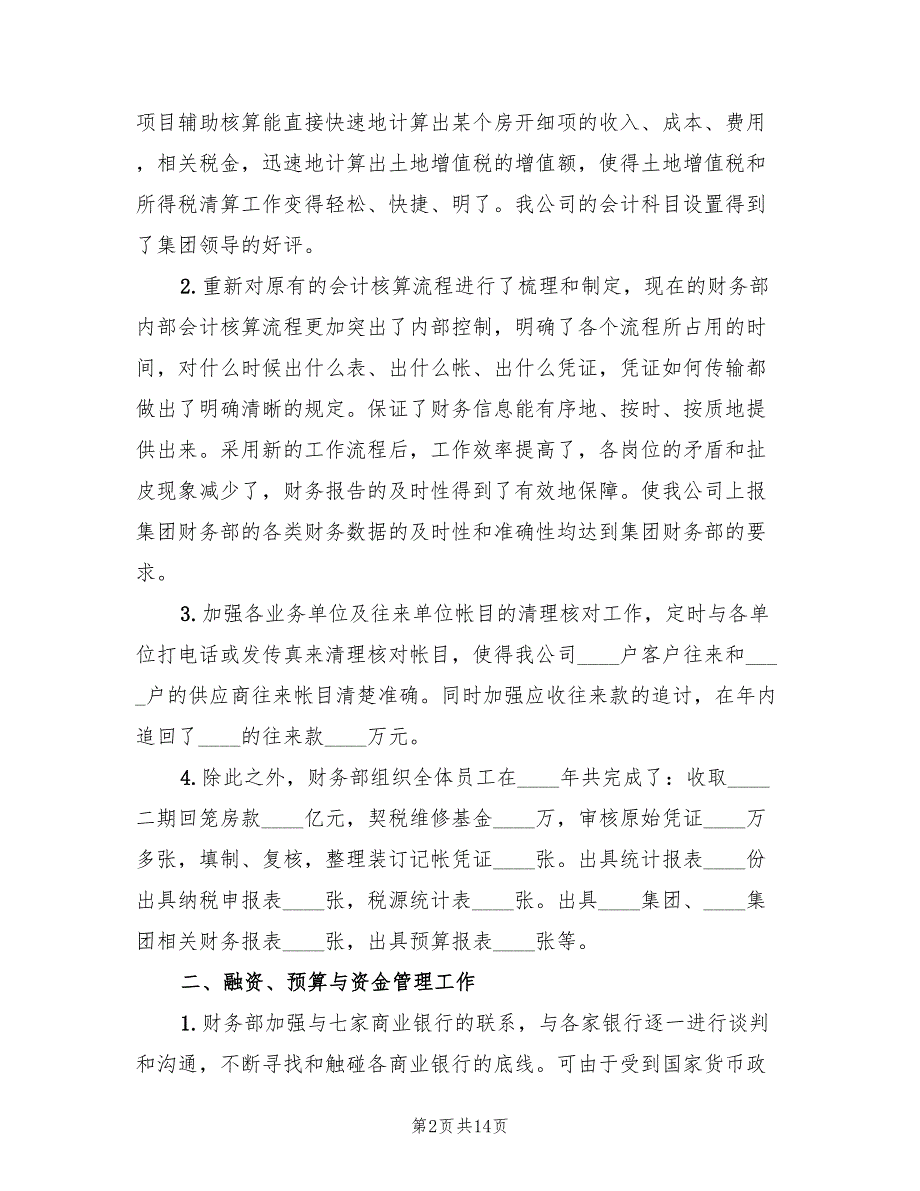 项目辅助核算能直接快速地计算出某个房开细项的收入、成本、费用
，相关税金，迅速地计算出土地增值税的增值额，使得土地增值税和
所得税清算工作变得轻松、快捷、明了。我公司的会计科目设置得到
了集团领导的好评。
2. 重新对原有的会计核算流程进行了梳理和制定，现在的财务部
内部会计核算流程更加突出了内部控制，明确了各个流程所占用的时
间，对什么时候出什么表、出什么帐、出什么凭证，凭证如何传输都
做出了明确清晰的规定。保证了财务信息能有序地、按时、按质地提
供出来。采用新的工作流程后，工作效率提高了，各岗位的矛盾和扯
皮现象减少了，财务报告的及时性得到了有效地保障。使我公司上报
集团财务部的各类财务数据的及时性和准确性均达到集团财务部的要
求。
3. 加强各业务单位及往来单位帐目的清理核对工作，定时与各单
位打电话或发传真来清理核对帐目，使得我公司____户客户往来和___
_户的供应商往来帐目清楚准确。同时加强应收往来款的追讨，在年内
追回了____的往来款____万元。
4. 除此之外，财务部组织全体员工在____年共完成了：收取____
二期回笼房款____亿元，契税维修基金____万，审核原始凭证____万
多张，填制、复核，整理装订记帐凭证____张。出具统计报表____份
出具纳税申报表____张，税源统计表____张。出具____集团、____集
团相关财务报表____张，出具预算报表____张等。
二、融资、预算与资金管理工作
1. 财务部加强与七家商业银行的联系，与各家银行逐一进行谈判
和沟通，不断寻找和触碰各商业银行的底线。可由于受到国家货币政
第2页共14页